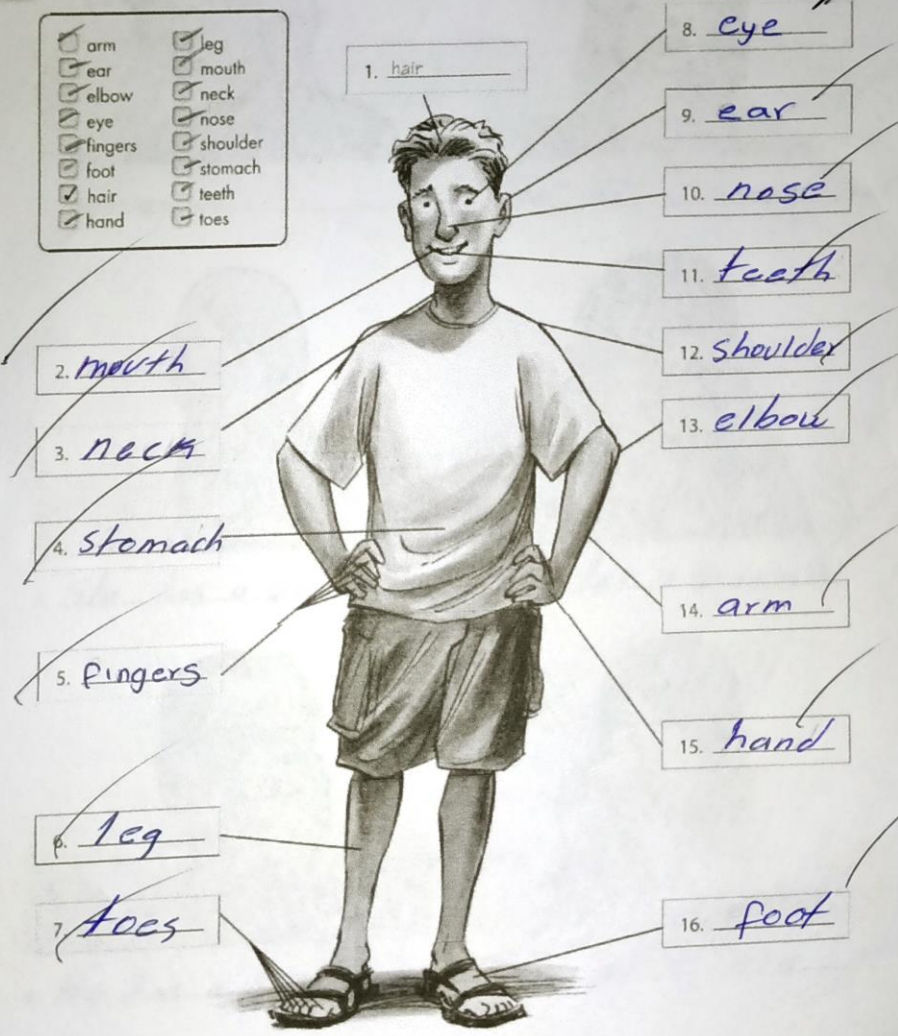 arm
ear
elbow
eye
fingers
foot
hair
hand
leg
mouth
neck
nose
shoulder
stomach
teeth
toes
1. hair
2. mouth
3. neck
4. stomach
5. fingers
6. leg
7 toes
8. eye
9. ear
10. nose
11. teeth
12. shoulder
13. elbow
14. arm
15. hand
16. foot